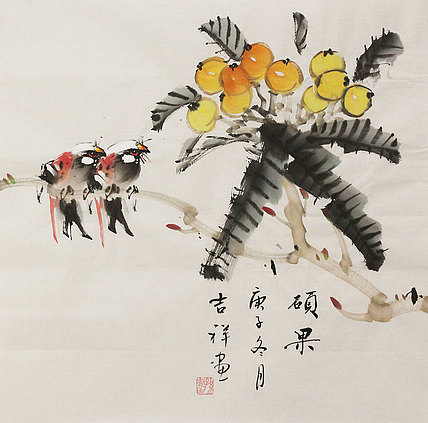 硕果
庚子冬月
吉祥画